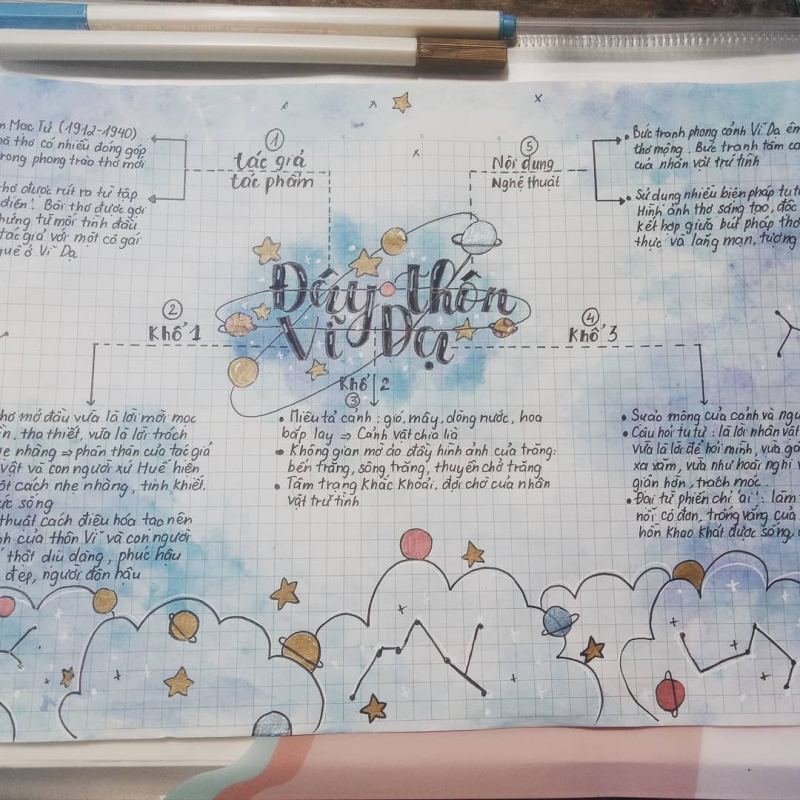 Đây thôn
Vĩ Dạ
①
tác giả
tác phẩm
Mạc Tử (1912-1940)
thơ có nhiều đóng góp
trong phong trào thơ mới
thơ được rút ra từ tập
điên". Bài thơ được gợi
hứng từ mối tình đầu
tác giả với một cô gái
quê ở Vĩ Dạ
②
Khổ 1
thơ mở đầu vừa là lời mời mọc
tha thiết, vừa là lời trách
nhẹ nhàng ⇒ phân thân của tác giả
vật và con người xứ Huế hiện
một cách nhẹ nhàng, tinh khiết.
sức sống
thuật cách điệu hóa tạo nên
của thôn Vĩ và con người
thật dịu dàng, phúc hậu
đẹp, người đôn hậu
Khổ 2
③
• Miêu tả cảnh: gió, mây, dòng nước, hoa
bắp lay ⇒ Cảnh vật chia lìa
• Không gian mờ ảo đầy hình ảnh của trăng:
bến trăng, sông trăng, thuyền chở trăng
• Tâm trạng khắc khoải, đợi chờ của nhân
vật trữ tình
④
Khổ 3
• Sự ảo mộng của cảnh và
• Câu hỏi tu từ: là lời nhân vật
vừa là lời để hỏi mình, vừa
xa xăm, vừa như hoài nghi
giận hờn, trách móc.
• Đại từ phiến chỉ "ai": làm
nỗi cô đơn, trống vắng của
hồn khao khát được sống,
⑤
Nội dung
Nghệ thuật
• Bức tranh phong cảnh Vĩ Dạ
thơ mộng. Bức tranh tâm
của nhân vật trữ tình
• Sử dụng nhiều biện pháp tu từ
Hình ảnh thơ sáng tạo,
kết hợp giữa bút pháp
thực và lãng mạn, tượng